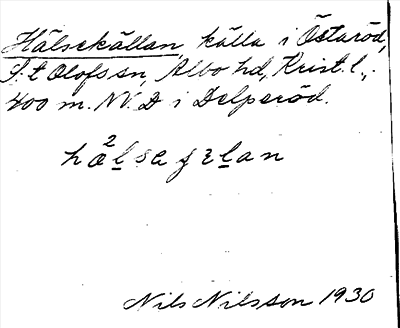 Hälsekällan, källa i Östaröd,
S:t Olofs sn, Albo hd, Krist. l.,
400 m. NV. D i Delperöd.
hälsa
Nils Nilsson 1930